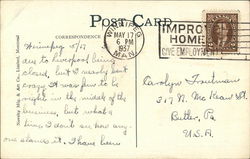 POST CARD
CORRESPONDENCE
WINNIPEG
MAY 17
6 PM
1937
MAN
IMPROVE
HOME
GIVE EMPLOYMENT
Novelty Mfg. & Art Co., Limited, Montreal
Winnipeg 5/17
to Liverpool being
closed, but I nearly went
It was fun to be
right in the midst of the
business, but what a
time. I don't see how any
one stands it. I have been
Carolyn Troutman
317 N. McKean St.
Butler, Pa.
U.S.A.